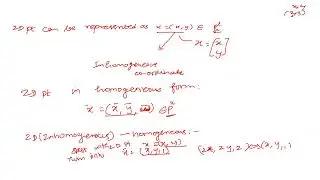 2D pt can be represented as x = (x, y) ∈ R²
x = [x y]
Inhomogeneous
co-ordinate
2D pt in homogeneous form:
x = (x̃, ỹ, w̃) ∈ P²
2D (Inhomogeneous) — homogeneous:-
x (x, y)
turn into x̄ = (x, y, 1) (2x, 2y, 2) (x, y, 1)